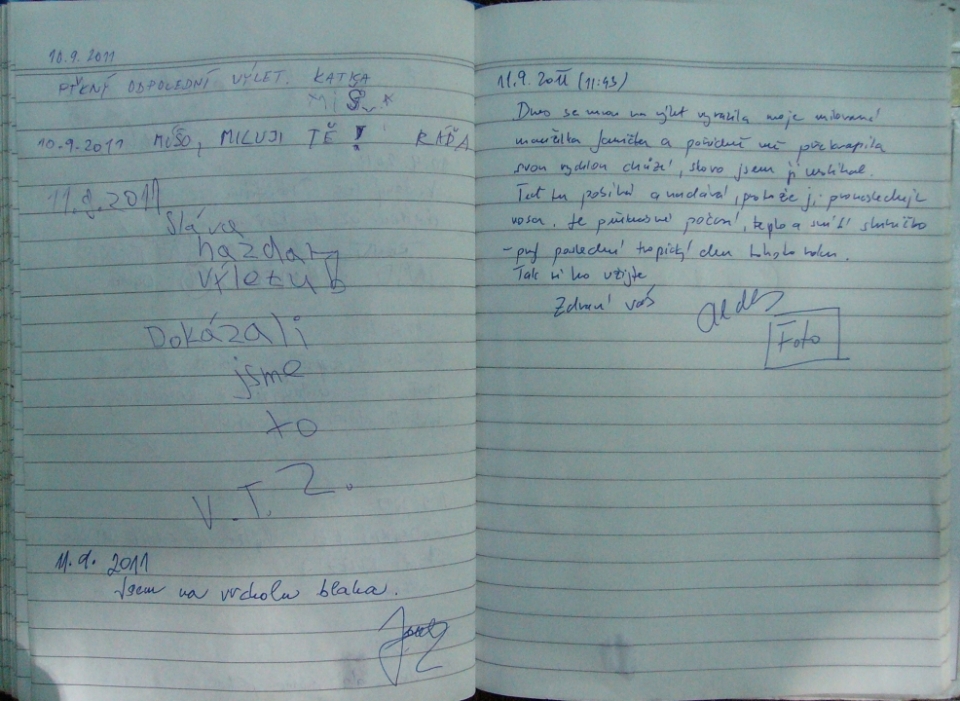 10.9.2011
PĚKNÝ ODPOLEDNÍ VÝLET. KATKA
10.9.2011 MÍŠO, MILUJI TĚ! RAĎA
11.9.2011
Sláva
nazdar
výletu
Dokázali
jsme
to
V.T. Z.
11.9.2011
Jsem na vrcholu blaha.
11.9.2011 (11:43)
Dnes se mnou na výlet vyrazila moje milovaná
manželka a pořádně mě překvapila
svou rychlou chůzí, skoro jsem jí nestíhal.
Teď tu pobíhá a nadává, protože ji pronásleduje
vosa. Je překrásné počasí, teplo a svítí sluníčko
- prý poslední tropický den tohoto roku.
Tak si ho užijte
Zdraví vás
Foto